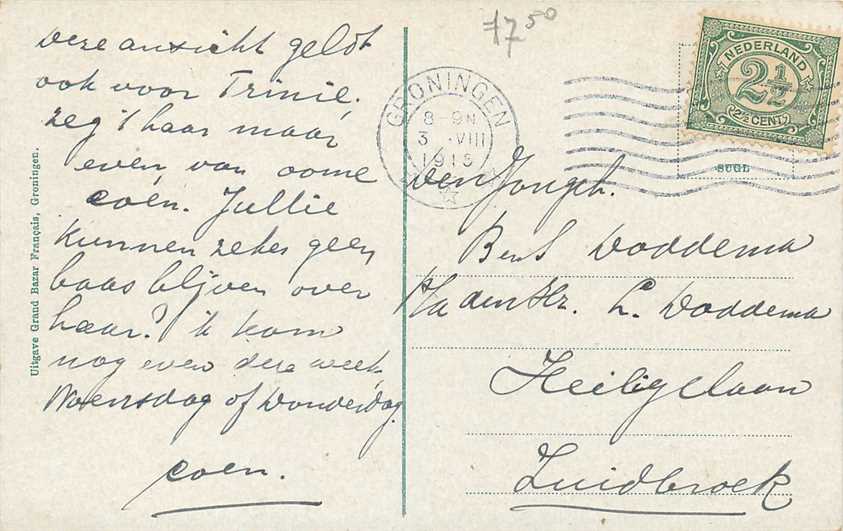 17 50
Deze ansicht geldt
ook voor Trinie.
zeg 't haar maar
even van oome
Coen. Jullie
kunnen zeker geen
baas blijven over
haar? ik kom
nog even deze week
Woensdag of Donderdag.
Coen.
Uitgave Grand Bazar Français, Groningen.
GRONINGEN
8-9N
3 .VIII
1915
NEDERLAND
2½
(2½ CENT)
SUGL
Den Jongeh.
Ben S Doddema
p/a den Hr. L. Doddema
Heiligelaan
Zuidbroek